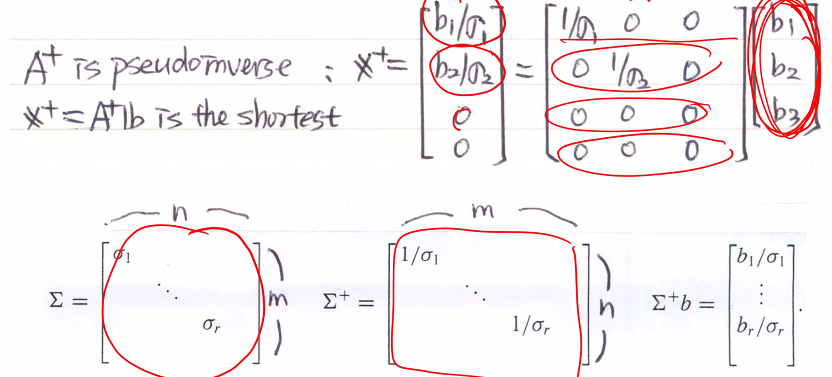 A⁺ is pseudoinverse : x⁺ = [b₁/σ₁ b₂/σ₂ 0 0] = [1/σ₁ 0 0; 0 1/σ₂ 0; 0 0 0; 0 0 0] [b₁ b₂ b₃]
x⁺ = A⁺b is the shortest
n m
Σ = [σ₁ ⋱ σᵣ] m Σ⁺ = [1/σ₁ ⋱ 1/σᵣ] n Σ⁺b = [b₁/σ₁ ⋮ bᵣ/σᵣ].